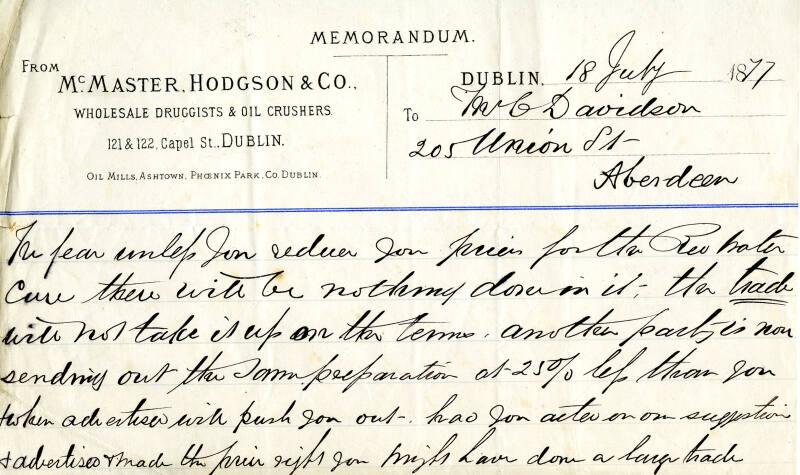 MEMORANDUM.
FROM
McMASTER, HODGSON & CO.,
WHOLESALE DRUGGISTS & OIL CRUSHERS.
121 & 122, Capel St., DUBLIN.
OIL MILLS, ASHTOWN, PHŒNIX PARK, CO. DUBLIN.
DUBLIN, 18 July 1877
To Mr C Davidson
205 Union St
Aberdeen
We fear unless you reduce your prices for the Red Water
Cure there will be nothing done in it, the trade
will not take it up on the terms. another party is now
sending out the same preparation at 25% less than you
& when advertised will push you out. had you acted on our suggestion
& advertised & made the price right you might have done a large trade